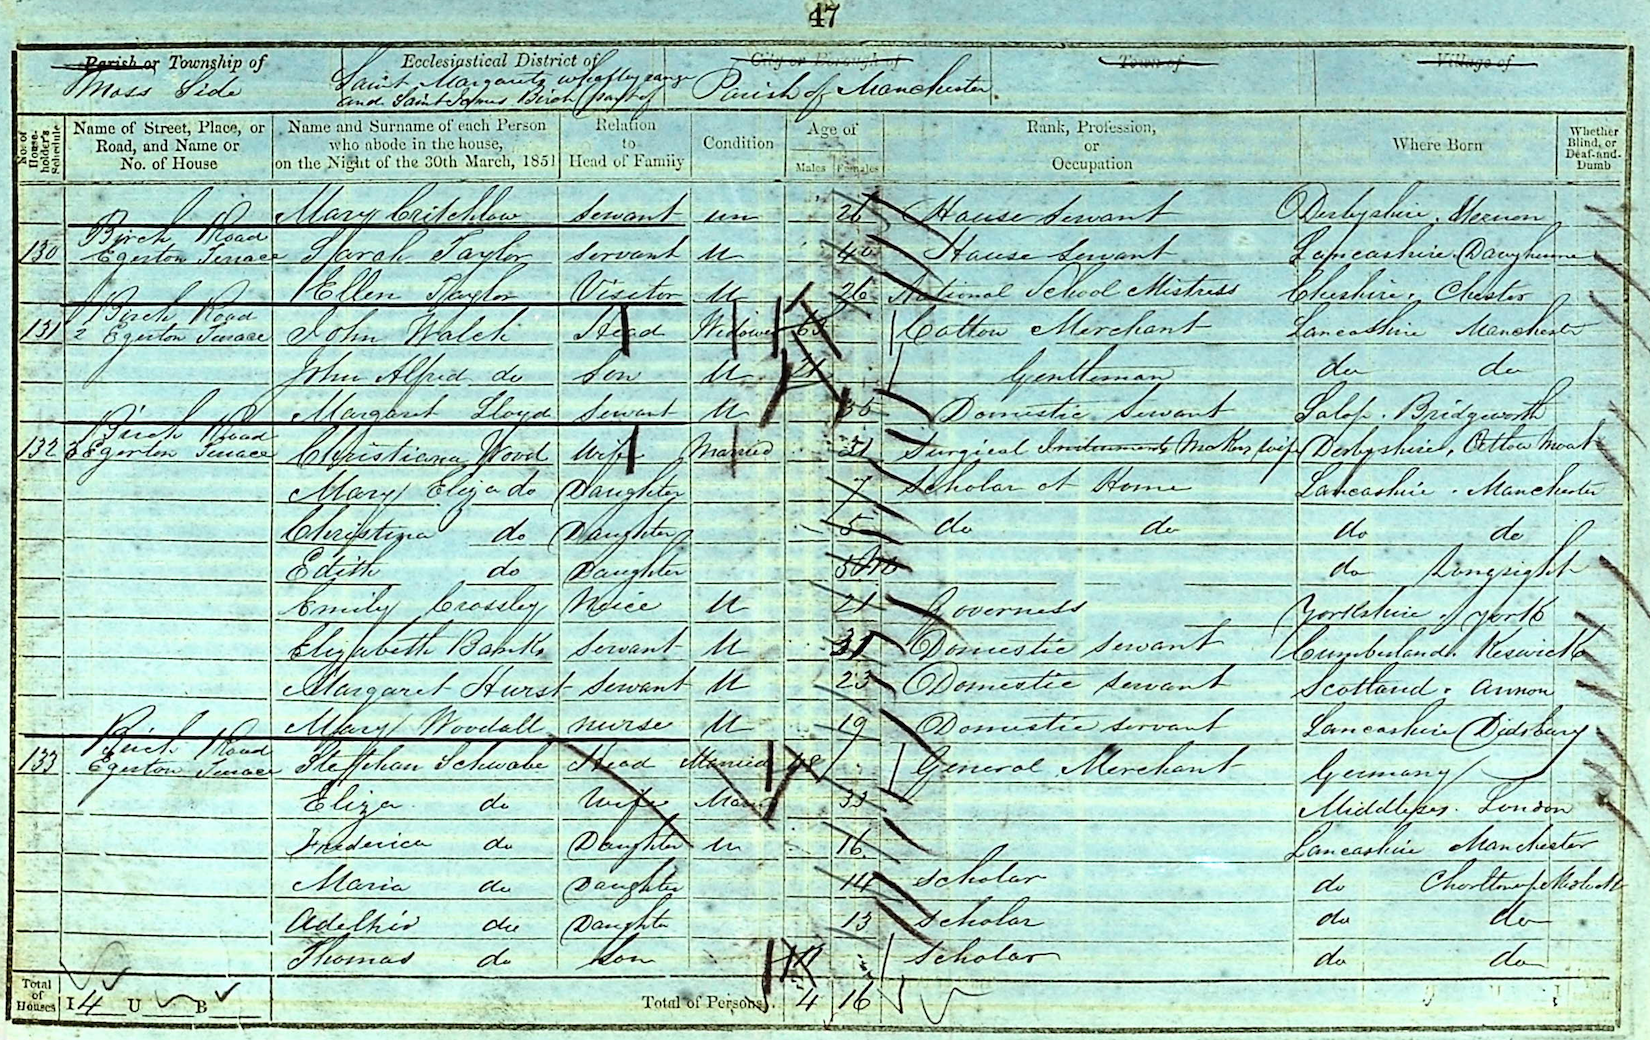 47
Parish or Township of Ecclesiastical District of City or Borough of Town of Village of
Moss Side Saint Margarets Whalley range Parish of Manchester
and Saint James Birch part of
No. of House-holder's Schedule Name of Street, Place, or Road, and Name or No. of House Name and Surname of each Person who abode in the house, on the Night of the 30th March, 1851 Relation to Head of Family Condition Age of Males Females Rank, Profession, or Occupation Where Born Whether Blind, or Deaf-and-Dumb
Mary Critchlow Servant un 26 House Servant Derbyshire
130 Birch Road Egerton Terrace Sarah Taylor Servant U 40 House Servant Lancashire
Ellen Taylor Visitor U 26 National School Mistress Cheshire. Chester
131 Birch Road 2 Egerton Terrace John Walch Head Widower 63 Cotton Merchant Lancashire Manchester
John Alfred do Son U Gentleman do do
Margaret Lloyd Servant U 35 Domestic Servant Salop. Bridgworth
132 Birch Road 3 Egerton Terrace Christiana Wood Wife Married 31 Surgical Instrument Makers wife Derbyshire,
Mary Eliza do Daughter 7 Scholar at Home Lancashire. Manchester
Christina do Daughter 5 do do do do
Edith do Daughter do Longsight
Emily Crossley Neice U 21 Governess Yorkshire, York
Elizabeth Banks Servant U 31 Domestic Servant Cumberland. Keswick
Margaret Hurst Servant U 23 Domestic Servant Scotland. Annon
Mary Woodall nurse U 19 Domestic Servant Lancashire Didsbury
133 Birch Road Egerton Terrace Stephan Schwabe Head Married 48 General Merchant Germany
Eliza do Wife Mar 33 Middlesex. London
Frederica do Daughter un 16 Lancashire Manchester
Maria do Daughter 14 Scholar do
Adelhid do Daughter 13 Scholar do do
Thomas do Son Scholar do do
Total of Houses I 4 U B Total of Persons 4 16